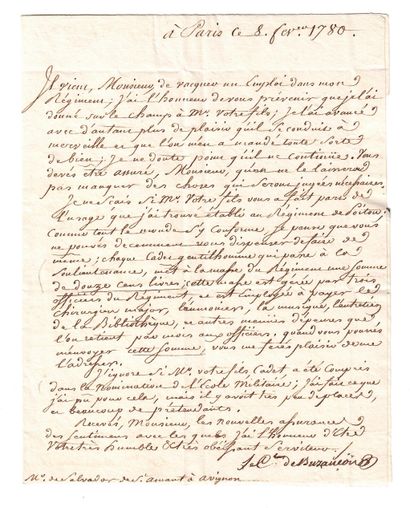 à Paris ce 8. fevrer 1780.
Il vient, Monsieur, de vacquer un Emploi dans mon
Régiment; j'ai l'honneur de vous prévenir que je l'ai
donné sur le champ à Mr. Votre fils; je l'ai avancé
avec d'autant plus de plaisir qu'il se conduit à
merveille et que l'on m'en a mandé toute sorte
de bien; je ne doute point qu'il ne continue. Vous
devés être assuré, Monsieur, qu'on ne le laissera
pas manquer des choses qui seront jugées nécessaires.
Je ne sais si Mr. Votre fils vous a fait part de
l'usage que j'ai trouvé établi au Régiment de Poitou
comme tout le monde s'y conforme, je pense que vous
ne pouvés decemment vous dispenser de faire de
même; chaque Cadet gentilhomme qui passe à la
Soulieutenance, met à la masse du Régiment une somme
de douze cens livres; cette masse est gérée par trois
officiers du Régiment, et est employée à payer le
chirurgien major, l'aumonier, la musique, l'entretien
de la Bibliothéque, et autres menües dépenses que
l'on retient par mois aux officiers. quand vous pourrés
m'envoyer cette somme, vous me ferés plaisir de me
l'adresser.
J'ignore si Mr. votre fils, Cadet a été Compris
dans la nomination de l'Ecole Militaire; j'ai fait ce que
j'ai pu pour cela, mais il y avoit très peu de places,
et beaucoup de prétendants.
Recevés, Monsieur, les nouvelles assurances
des sentimens avec lesquels j'ai l'honneur d'Etre
Votre très humble Et très obéissant Serviteur.
le Cte. de Buzançois
Mr. de Salvador de St. amant à Avignon